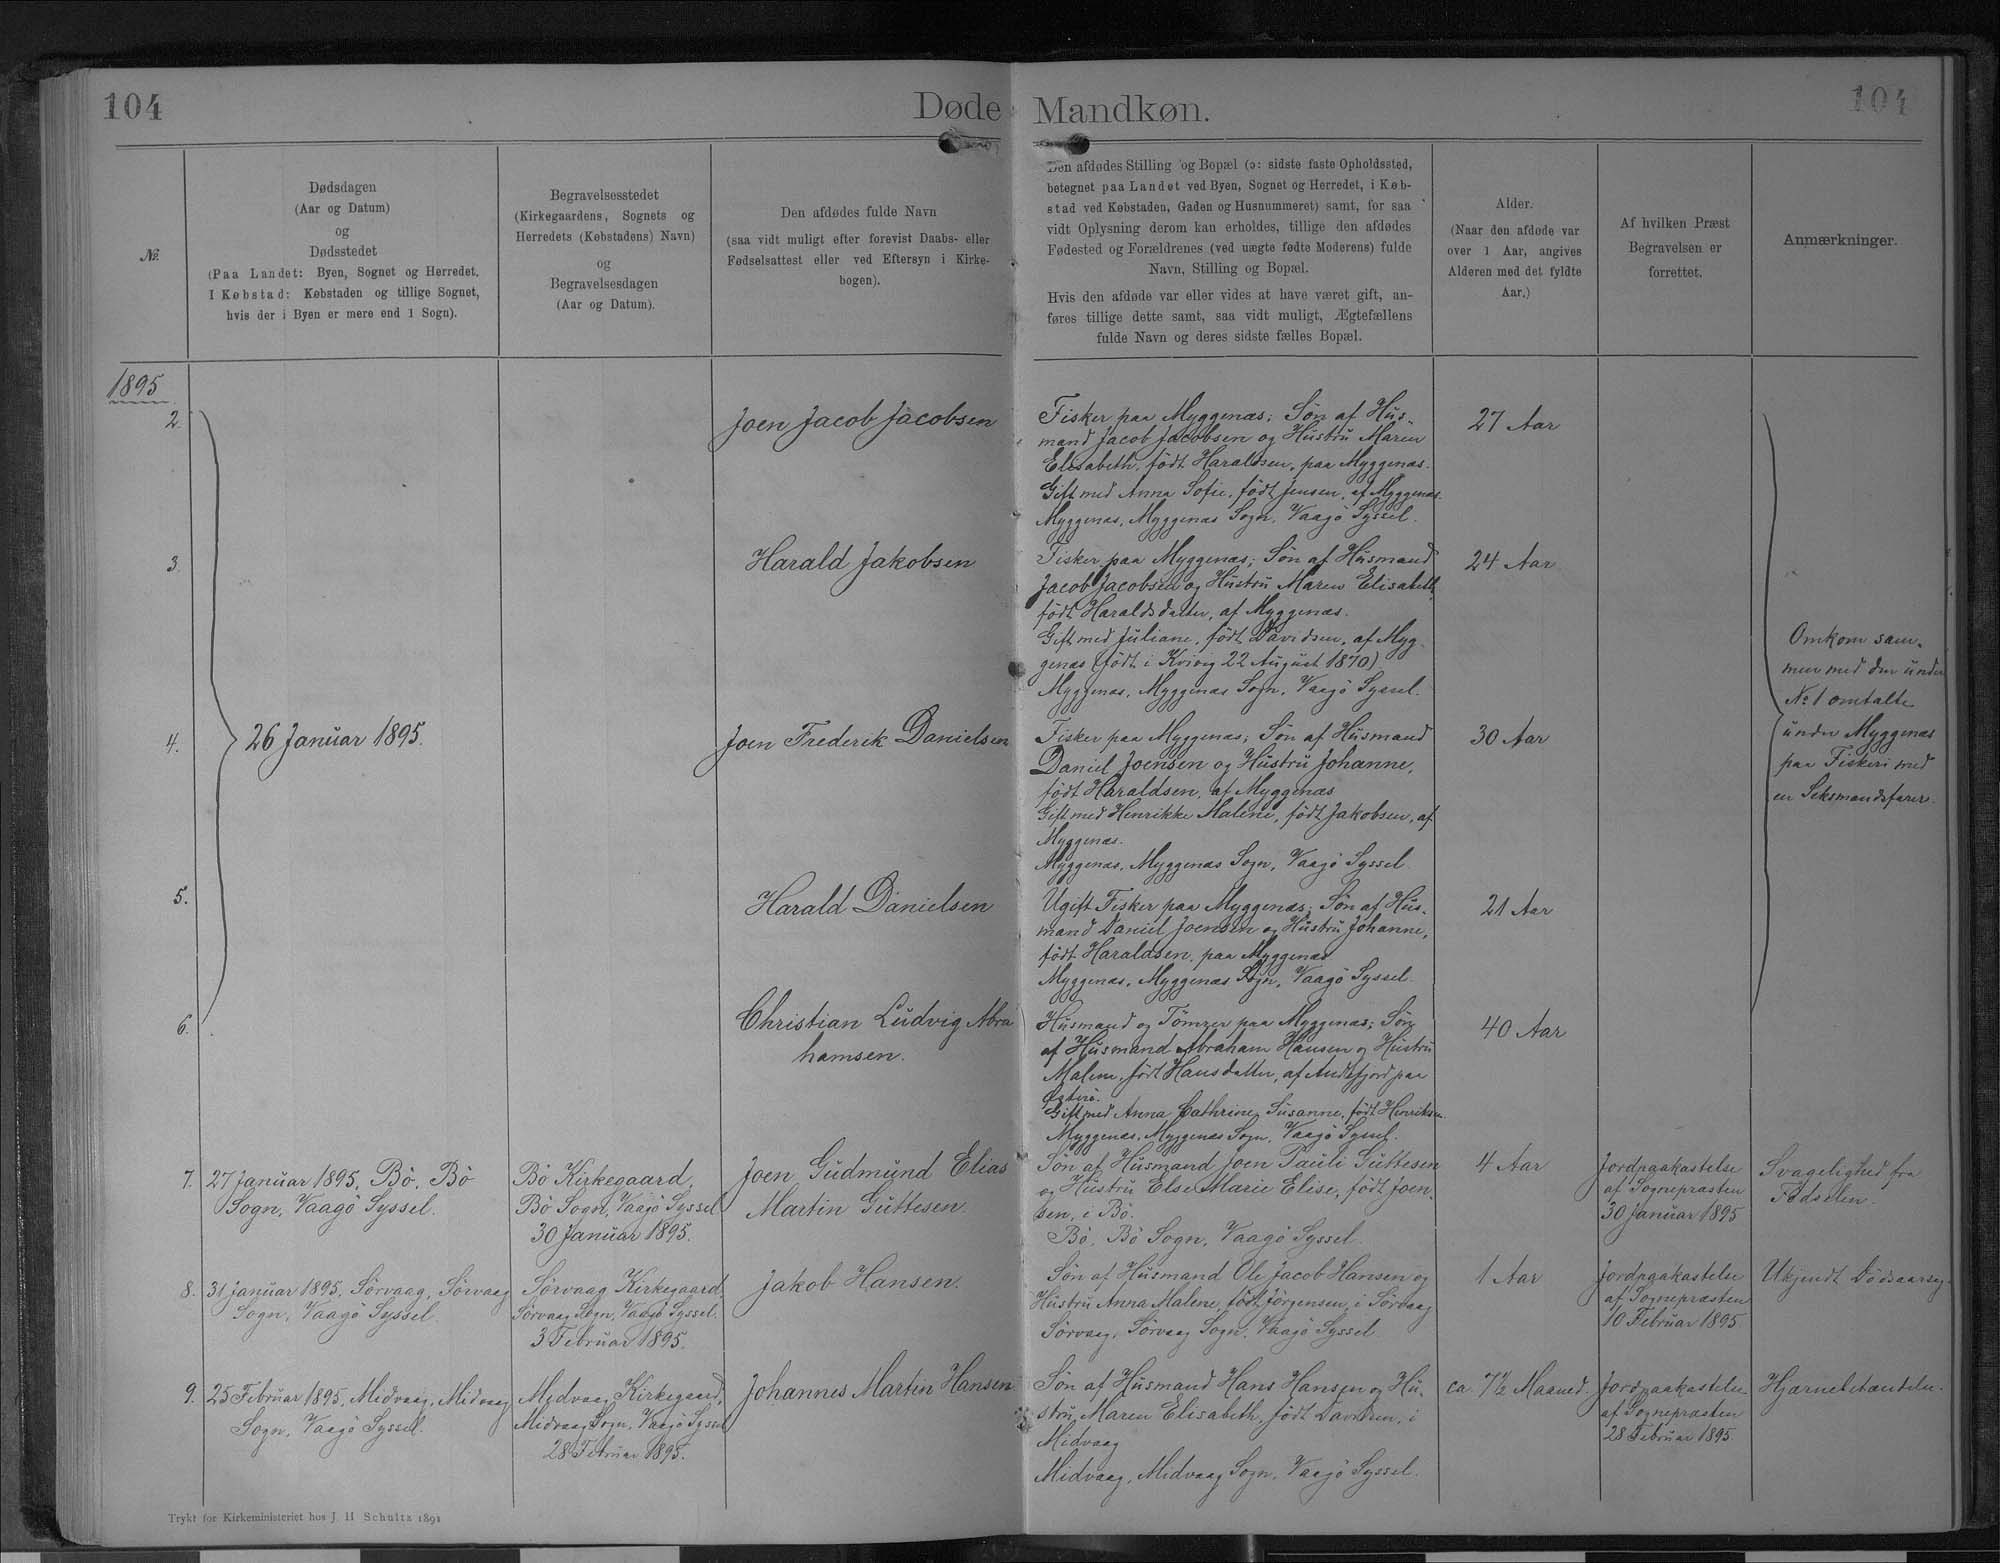 104
Døde Mandkøn.
104
№
Dødsdagen
(Aar og Datum)
og
Dødsstedet
(Paa Landet: Byen, Sognet og Herredet.
I Købstad: Købstaden og tillige Sognet,
hvis der i Byen er mere end 1 Sogn).
Begravelsesstedet
(Kirkegaardens, Sognets og
Herredets (Købstadens) Navn)
og
Begravelsesdagen
(Aar og Datum).
Den afdødes fulde Navn
(saa vidt muligt efter forevist Daabs- eller
Fødselsattest eller ved Eftersyn i Kirke-
bogen).
Den afdødes Stilling og Bopæl (ɔ: sidste faste Opholdssted,
betegnet paa Landet ved Byen, Sognet og Herredet, i Køb-
stad ved Købstaden, Gaden og Husnummeret) samt, for saa
vidt Oplysning derom kan erholdes, tillige den afdødes
Fødested og Forældrenes (ved uægte fødte Moderens) fulde
Navn, Stilling og Bopæl.
Hvis den afdøde var eller vides at have været gift, an-
føres tillige dette samt, saa vidt muligt, Ægtefællens
fulde Navn og deres sidste fælles Bopæl.
Alder.
(Naar den afdøde var
over 1 Aar, angives
Alderen med det fyldte
Aar.)
Af hvilken Præst
Begravelsen er
forrettet.
Anmærkninger.
1895
2.
Joen Jacob Jacobsen
Fisker paa Myggenæs; Søn af Hus-
mand Jacob Jacobsen og Hustru Maren
Elisabeth, født Haraldsen, paa Myggenæs.
Gift med Anna Sofie, født Jensen, af Myggenæs.
Myggenæs, Myggenæs Sogn, Vaagö Syssel.
27 Aar
3.
Harald Jakobsen
Fisker paa Myggenæs; Søn af Husmand
Jacob Jacobsen og Hustru Maren Elisabeth,
født Haraldsdatter, af Myggenæs.
Gift med Juliane, født Davidsen, af Myg-
genæs (født i Kvivig 22 August 1870)
Myggenæs, Myggenæs Sogn, Vaagö Syssel.
24 Aar
4.
26 Januar 1895.
Joen Frederik Danielsen
Fisker paa Myggenæs; Søn af Husmand
Daniel Joensen og Hustru Johanne,
født Haraldsen, af Myggenæs
Gift med Henrikke Malene, født Jakobsen, af
Myggenæs.
Myggenæs, Myggenæs Sogn, Vaagö Syssel.
30 Aar
Omkom sam-
men med den under
No 1 omtalte
under Myggenæs
paa Fiskeri med
en Seksmandsfarer.
5.
Harald Danielsen
Ugift Fisker paa Myggenæs; Søn af Hus-
mand Daniel Joensen og Hustru Johanne,
født Haraldsen, paa Myggenæs
Myggenæs, Myggenæs Sogn, Vaagö Syssel.
21 Aar
6.
Christian Ludvig Abra
hamsen.
Husmand og Tømrer paa Myggenæs; Søn
af Husmand Abraham Hansen og Hustru
Malene, født Hansdatter, af Andefjord paa
Østerø.
Gift med Anna Cathrine Susanne, født Henriksen.
Myggenæs, Myggenæs Sogn, Vaagö Syssel.
40 Aar
7.
27 Januar 1895, Bö, Bö
Sogn, Vaagö Syssel.
Bö Kirkegaard,
Bö Sogn, Vaagö Syssel
30 Januar 1895.
Joen Gudmund Elias
Martin Guttesen.
Søn af Husmand Joen Pauli Guttesen
og Hustru Else Marie Elise, født Joen-
sen, i Bö.
Bö, Bö Sogn, Vaagö Syssel.
4 Aar
Jordpaakastelse
af Sognepræsten
30 Januar 1895
Svagelighed fra
Fødselen.
8.
31 Januar 1895, Sørvaag, Sørvaag
Sogn, Vaagö Syssel.
Sørvaag Kirkegaard,
Sørvaag Sogn, Vaagö Syssel.
3 Februar 1895.
Jakob Hansen.
Søn af Husmand Ole Jacob Hansen og
Hustru Anna Malene, født Jörgensen, i Sørvaag
Sørvaag, Sørvaag Sogn, Vaagö Syssel
1 Aar
Jordpaakastelse
af Sognepræsten
10 Februar 1895
Ukjendt Dödsaarsag.
9.
25 Februar 1895, Midvaag, Midvaag
Sogn, Vaagö Syssel.
Midvaag Kirkegaard,
Midvaag Sogn, Vaagö Syssel
28 Februar 1895.
Johannes Martin Hansen
Søn af Husmand Hans Hansen og Hu-
stru Maren Elisabeth, født Davidsen, i
Midvaag
Midvaag, Midvaag Sogn, Vaagö Syssel.
ca. 7½ Maaned.
Jordpaakastelse
af Sognepræsten
28 Februar 1895.
Hjærnebetændelse.
Trykt for Kirkeministeriet hos J. H Schultz 1891